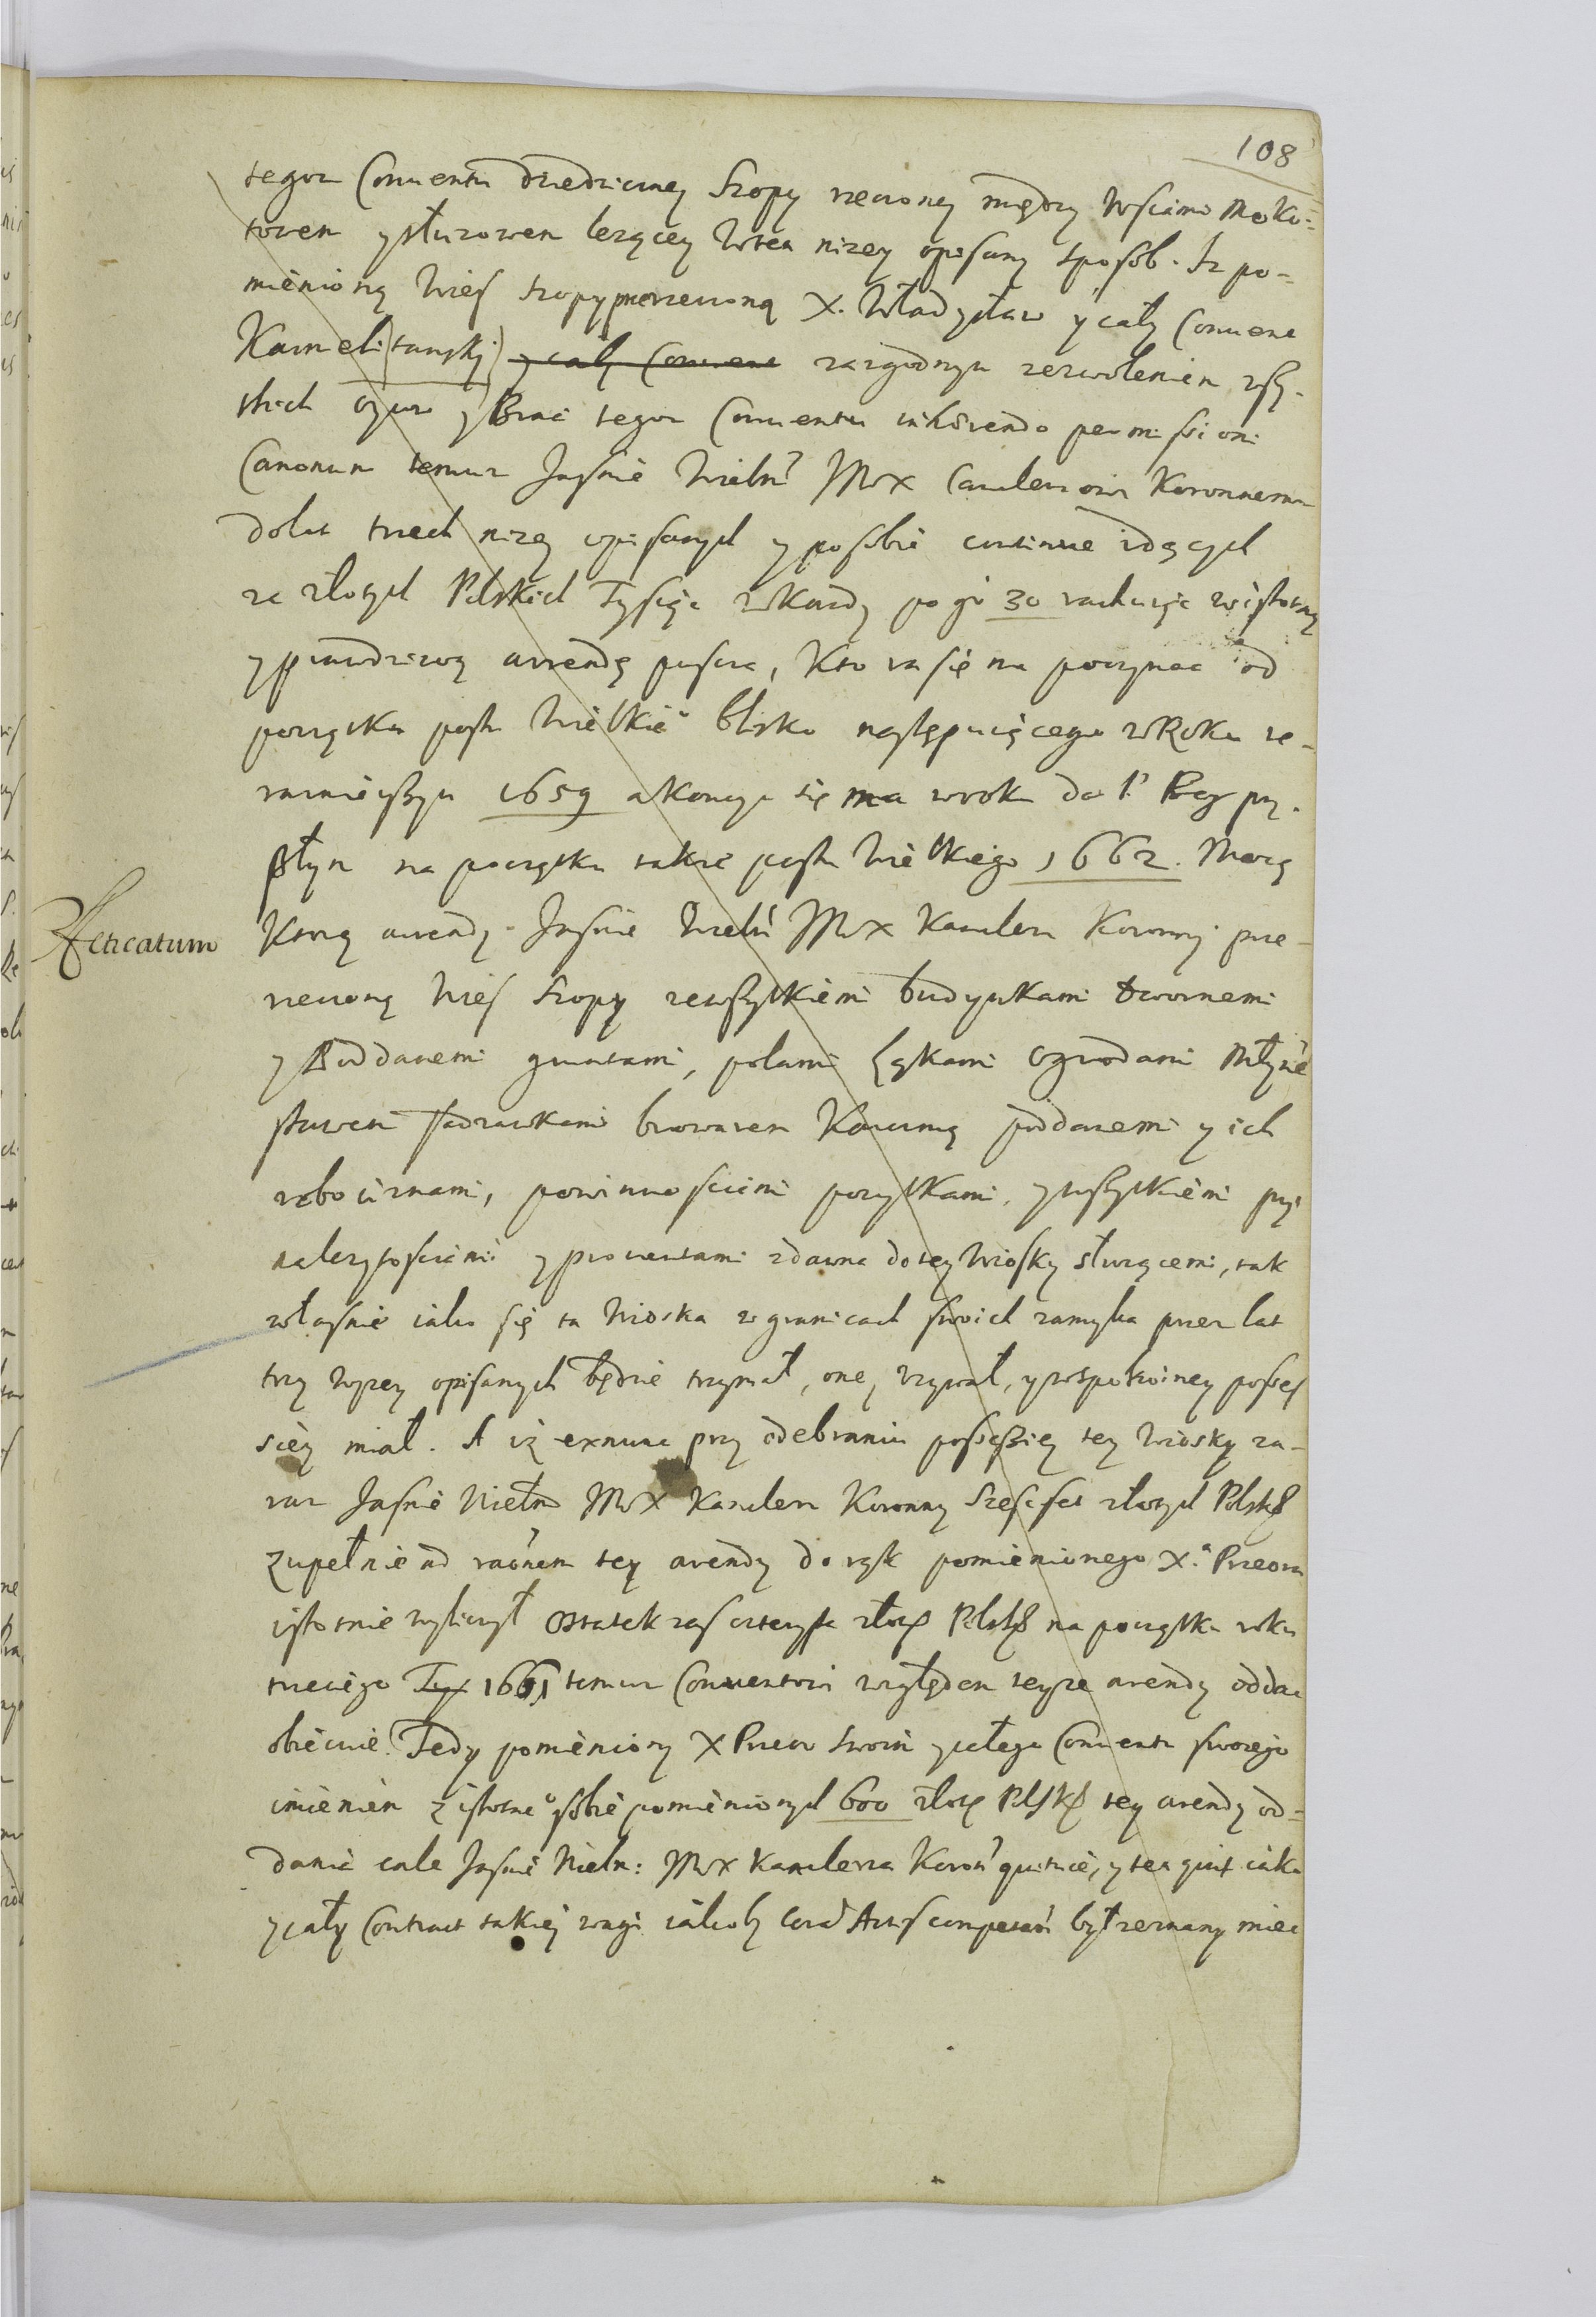 108
tegoz Conuentu dziedziczney Szopy rzeczoney między Wsciami Moko-
towem y Służowem lezącey w ten nizey opisany sposob. Iz po-
mienioną Wies Szopy przerzeczoną X. Władysław y cały Conuent
Karmelitanski y cały Conuent za zgodnym zezwoleniem wszy-
stkich Oycow y Braci tegoz Conuentu inhærendo permissioni
Canonum temuz Jasnie Wielm̃ Mx Canclerzowi Koronnemu
do lat trzech nizey opisanych y po sobie continue idących
za złotych Polskich Tysiąc w kazdy po gr 30 rachuiąc w istotną
y prawdziwą arrendę puscza, Ktora się ma poczynac od
początku postu Wielkie⁰ blisko następuiącego w Roku te-
raznieyszym 1659 a konczyc się ma w rok da P. Bog przy-
szłym na początku takze postu Wielkiego 1662. Mocą
Acticatum
Ktorey arendy Jasnie Wielm̃ Mx Kanclerz Koronny prze-
rzeczoną Wies Szopy ze wszytkiemi budynkami dwornemi
y Poddanemi gruntami, polami Łąkami Ogrodami Młynē
stawem sadzawkami browarem Karczmą poddanemi y ich
robociznami, powinnosciami pozytkami, y wszytkiemi przy
nalezytosciami y prowentami zdawna do tey Wiosky słuzącemi, tak
własnie iako się ta Wioska w granicach swoich zamyka przez lat
trzy wyzey opisanych będzie trzymał, oney uzywał, y w spokoiney posses
siey miał. A iz exnunc przy odebraniu possessiey tey Wiosky za-
raz Jasnie Wielm Mx Kanclerz Koronny Szescset złotych Polskᶜʰ
zupełnie ad rationem tey arendy do rąk pomienionego X.ᵃ Przeora
istotnie wyliczył Ostatek zas czterysta złotᶜʰ Polskᶜʰ na początku roku
trzeciego Tys 1661 temuz Conuentowi względem teyze arendy oddac
obiecuie. Tedy pomieniony X Przeor swoim y całego Conuentu swoiego
imieniem z istotne⁰ sobie pomienionych 600 złotᶜʰ Polskᶜʰ tey arendy od-
dania cale Jasnie Wielm: Mx Kanclerza Koroñ quituie, y ten quit iako
y cały Contract takiey wagi iakoby corã Actis competen̄ był zeznany miec